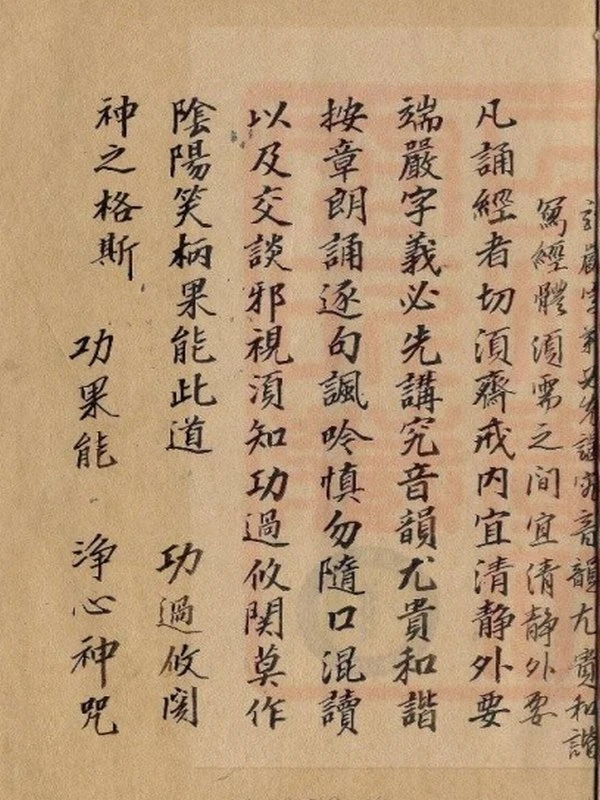 嚴字義必先講究音韻尤貴和諧
寫經體須需之間宜清静外要
凡誦經者切須齊戒内宜清静外要
端嚴字義必先講究音韻尤貴和諧
按章朗誦逐句諷吟慎勿隨口混讀
以及交談邪視須知功過攸関莫作
陰陽笑柄果能此道 功過攸関
神之格斯
功果能 淨心神咒